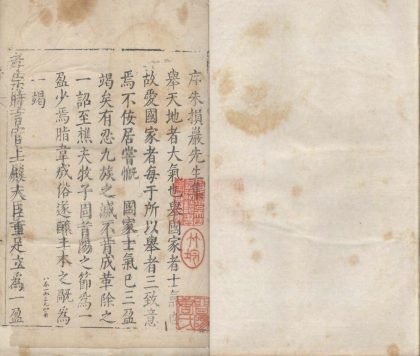 序朱損巖先生
舉天地者大氣也舉國家者士氣
故愛國家者每于所以舉者三致意
焉不佞居嘗慨 國家士氣已三盈
竭矣有忍九族之滅不肯成革除之
一詔至樵夫牧子固首陽之節為一
盈少焉脂韋成俗遂釀土木之釁為
一竭
宗時言官主大臣重足立為一盈